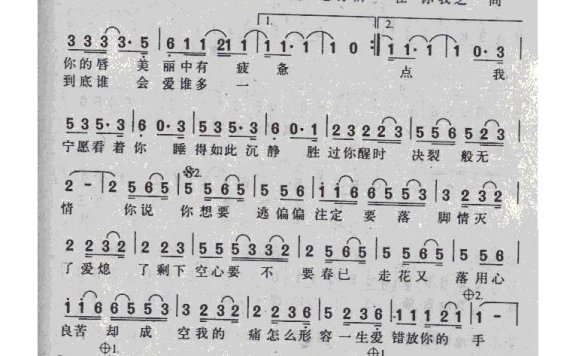 在 你 我 之 间
1. 2.
3 3 3 3· 5 | 6 1 1 21 1 | 1 1· 1 | 1 0 :‖ 1 1· 1 | 1 0· 3
你的唇 美 丽中有 疲 惫 点 我
到底谁 会 爱谁多 一
5 3 5· 3 | 6 0· 3 | 5 3 5· 3 | 6 0· 1 | 2 3 2 2 3 | 5 5 6 5 2 3
宁愿看着你 睡得如此沉静 胜过你醒时 决裂般无
2 - | 2 5 6 5 | 2 5 6 5 | 5 5 6 | 1 1 6 6 5 5 3 | 3 2 3 2
情 你说 你想要 逃偏偏注定要落 脚情灭
2 2 3 2 | 2 2 3 5 | 5 5 5 3 3 2 | 2 2 3 5 | 5 5 6 5 | 5 5 6
了爱熄 了剩下空心要 不 要春已 走花又 落用心
1 1 6 6 5 5 3 | 3 2 3 2 | 2 2 3 2 | 2 2 3 5 | 5 5 6 5 | 1 -
良苦却成 空我的 痛怎么形 容一生爱 错放你的 手
1. 1.